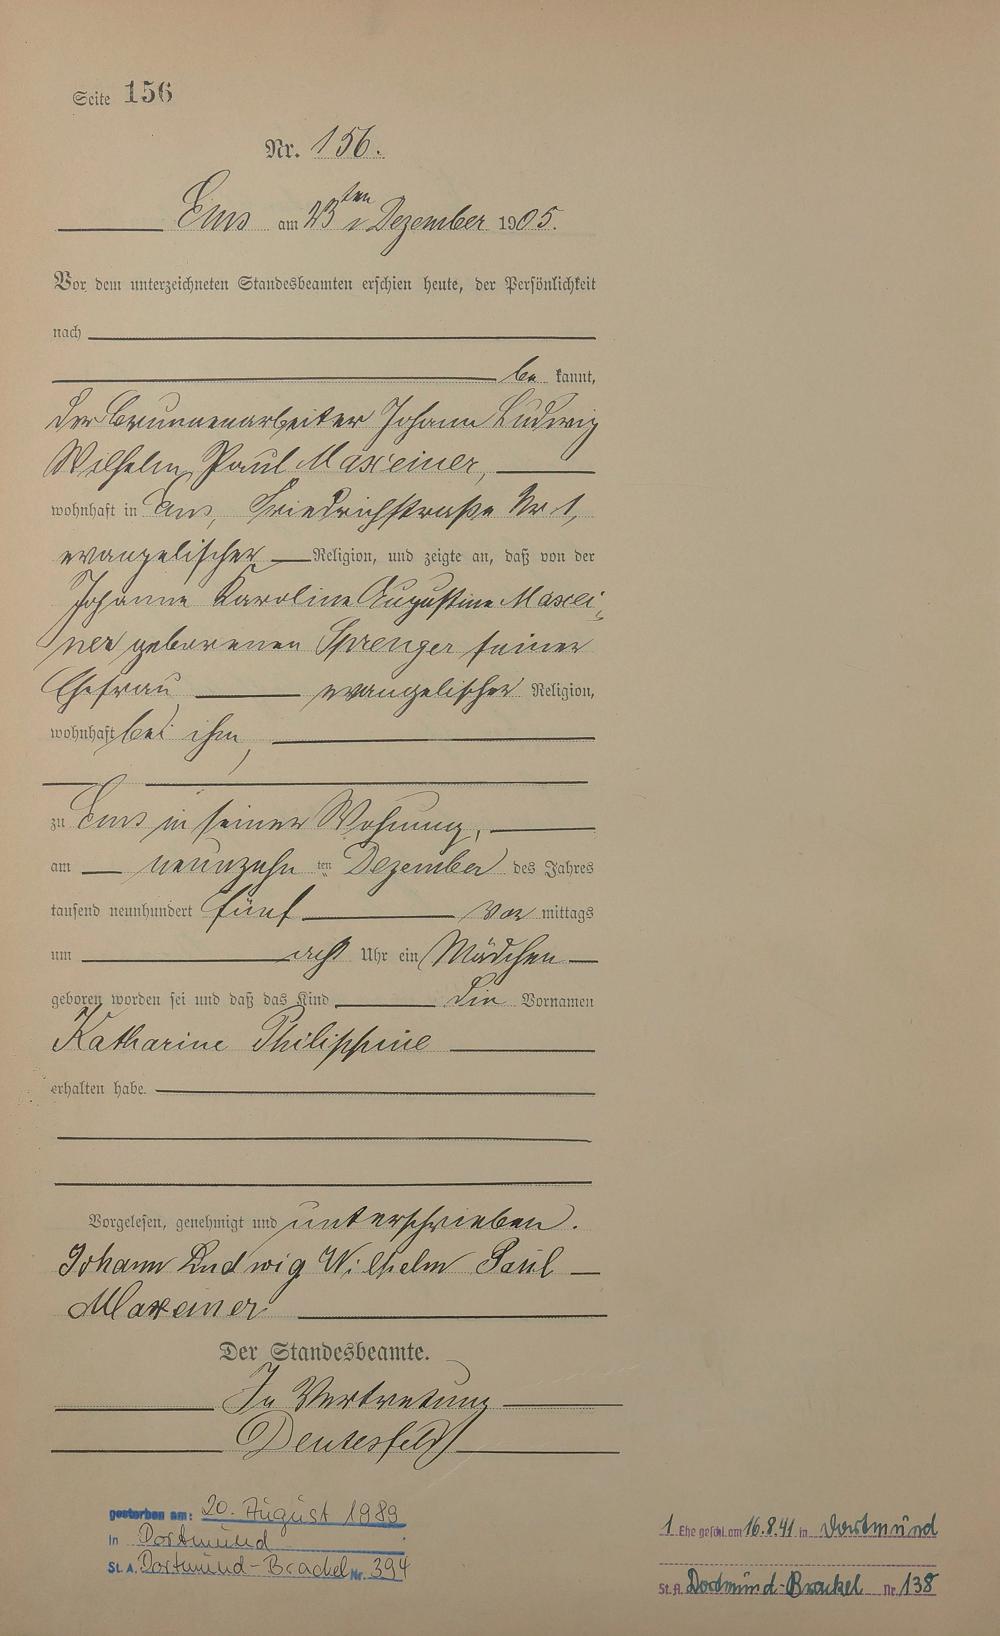 Seite 156
Nr. 156.
Ems am 23ten Dezember 1905.
Vor dem unterzeichneten Standesbeamten erschien heute, der Persönlichkeit
nach
be kannt,
der Brunnenarbeiter Johann Ludwig
Wilhelm Paul Maxeiner,
wohnhaft in Ems, Friedrichstraße Nr. 1,
evangelischer Religion, und zeigte an, daß von der
Johanne Karoline Augustine Maxei-
ner geborenen Sprenger seiner
Ehefrau evangelischer Religion,
wohnhaft bei ihm,
zu Ems in seiner Wohnung,
am neunzehn ten Dezember des Jahres
tausend neunhundert fünf vor mittags
um acht Uhr ein Mädchen
geboren worden sei und daß das Kind die Vornamen
Katharine Philippine
erhalten habe.
Vorgelesen, genehmigt und unterschrieben.
Johann Ludwig Wilhelm Paul
Maxeiner
Der Standesbeamte.
In Vertretung
Deutesfeld
gestorben am: 20. August 1989
in Dortmund
St. A. Dortmund-Brackel Nr. 394
1. Ehe geschl. am 16.8.41 in Dortmund
St. A. Dortmund-Brackel Nr. 138